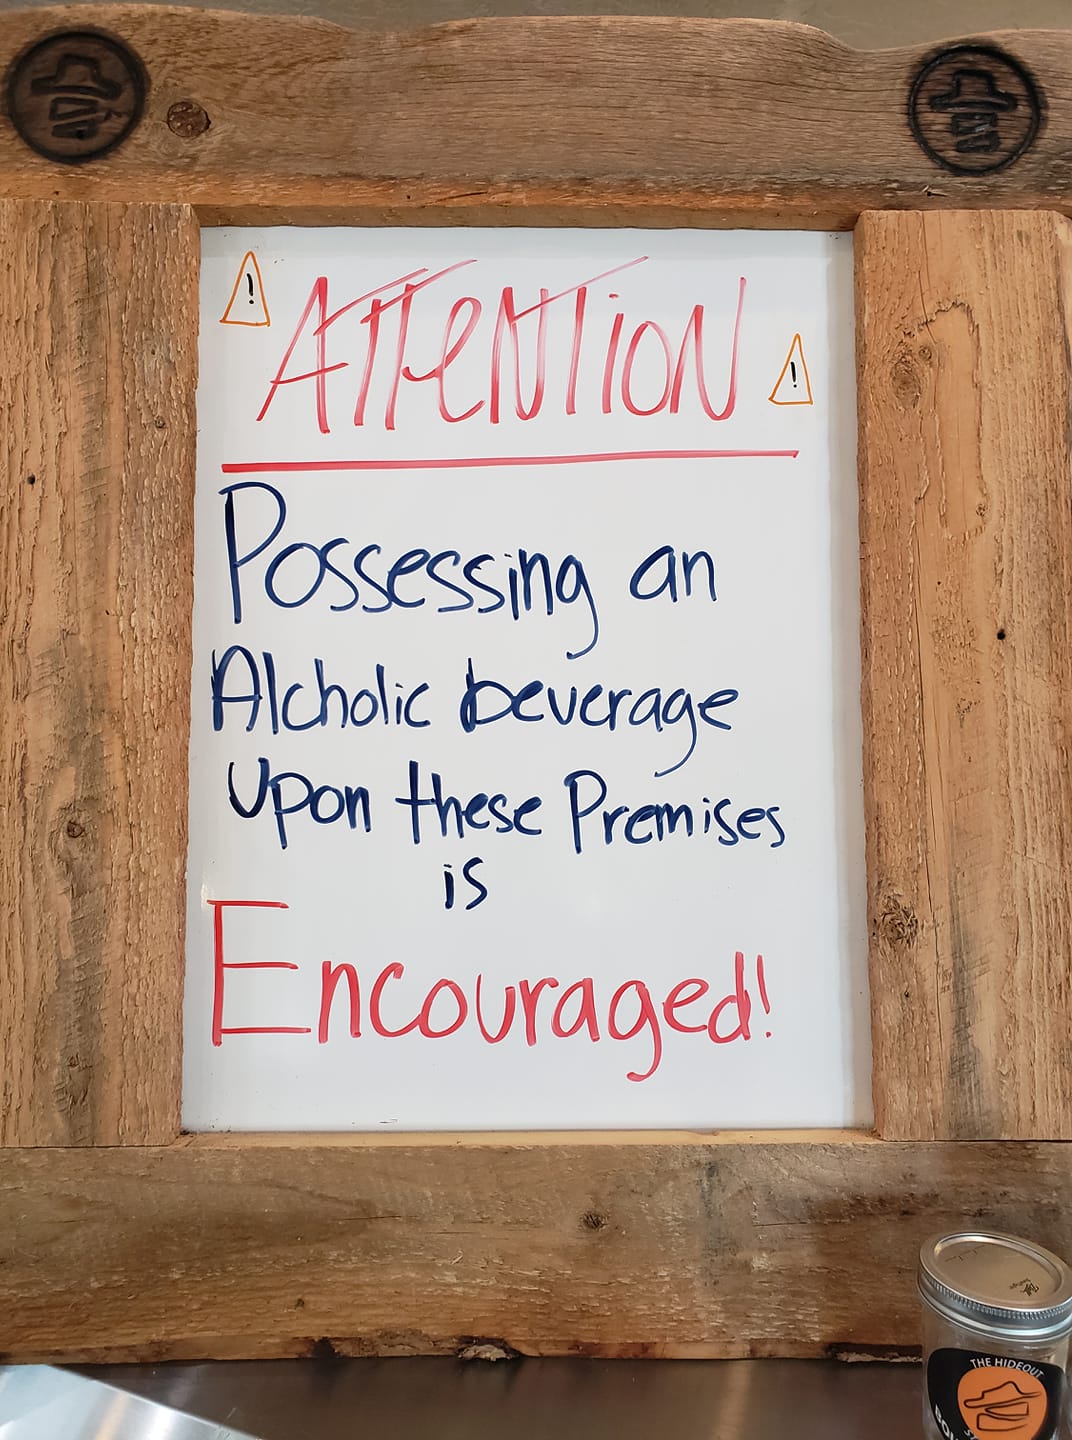 !
ATTENTION
!
Possessing an
Alcholic beverage
Upon these Premises
is
Encouraged!
THE HIDEOUT